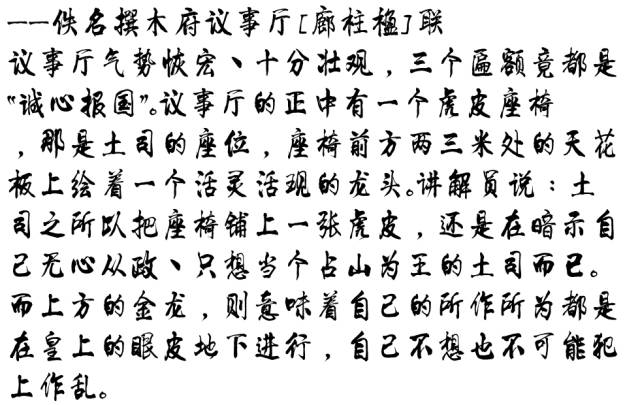 ——佚名撰木府议事厅[廊柱楹]联
议事厅气势恢宏、十分壮观，三个匾额竟都是
“诚心报国”。议事厅的正中有一个虎皮座椅
，那是土司的座位，座椅前方两三米处的天花
板上绘着一个活灵活现的龙头。讲解员说：土
司之所以把座椅铺上一张虎皮，还是在暗示自
己无心从政、只想当个占山为王的土司而已。
而上方的金龙，则意味着自己的所作所为都是
在皇上的眼皮地下进行，自己不想也不可能犯
上作乱。